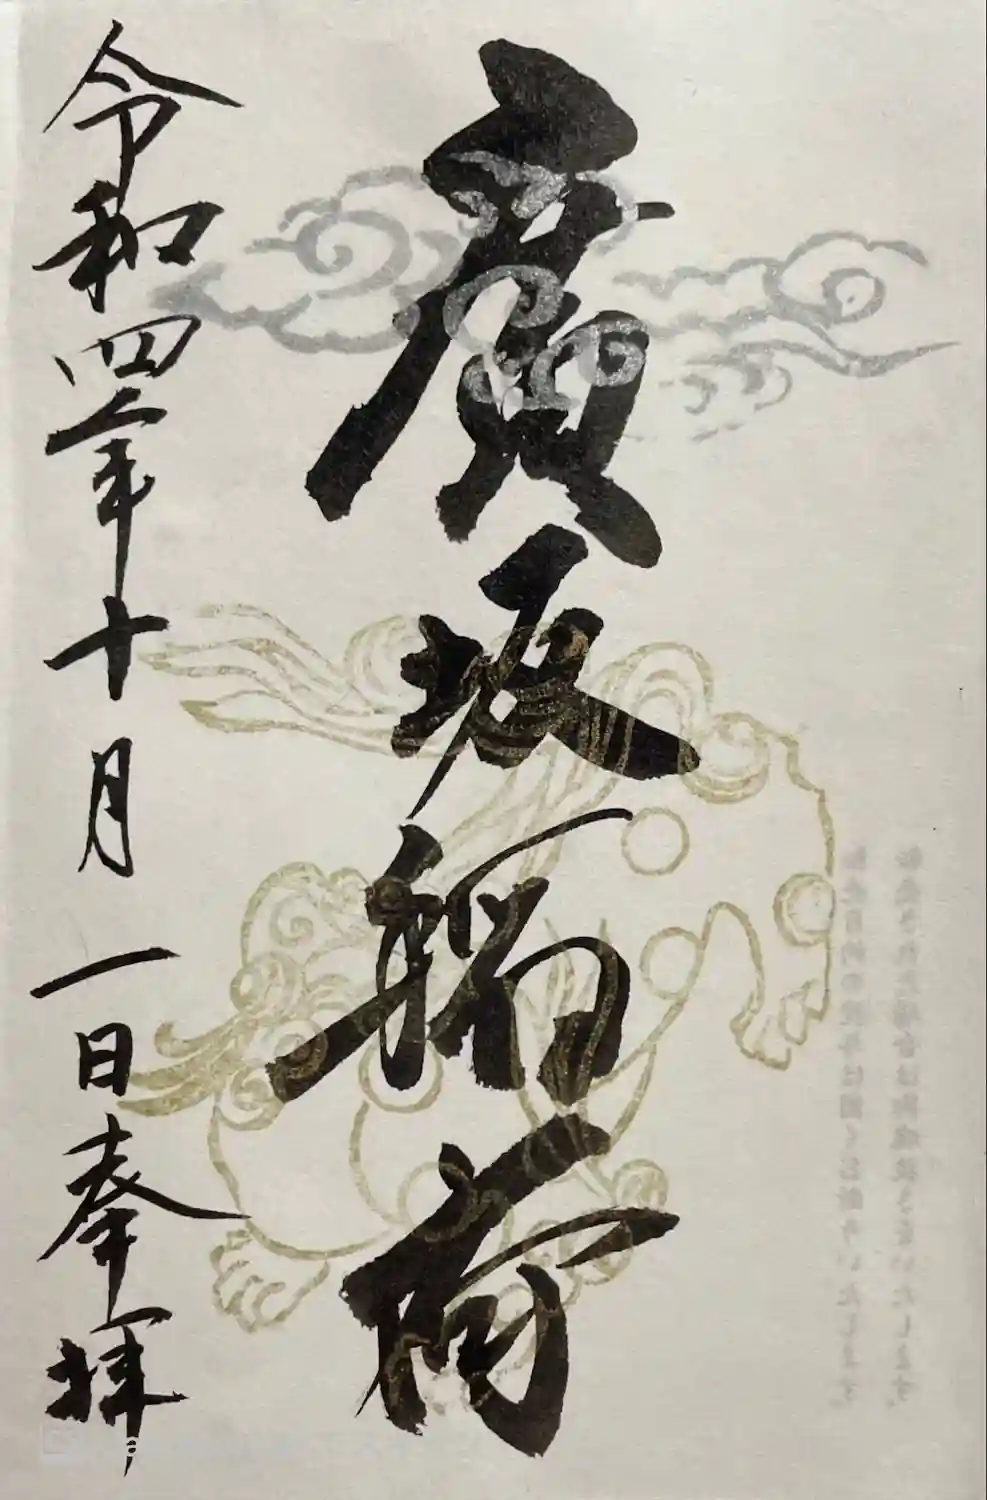 廣坂稲荷
令和四年十月一日奉拝